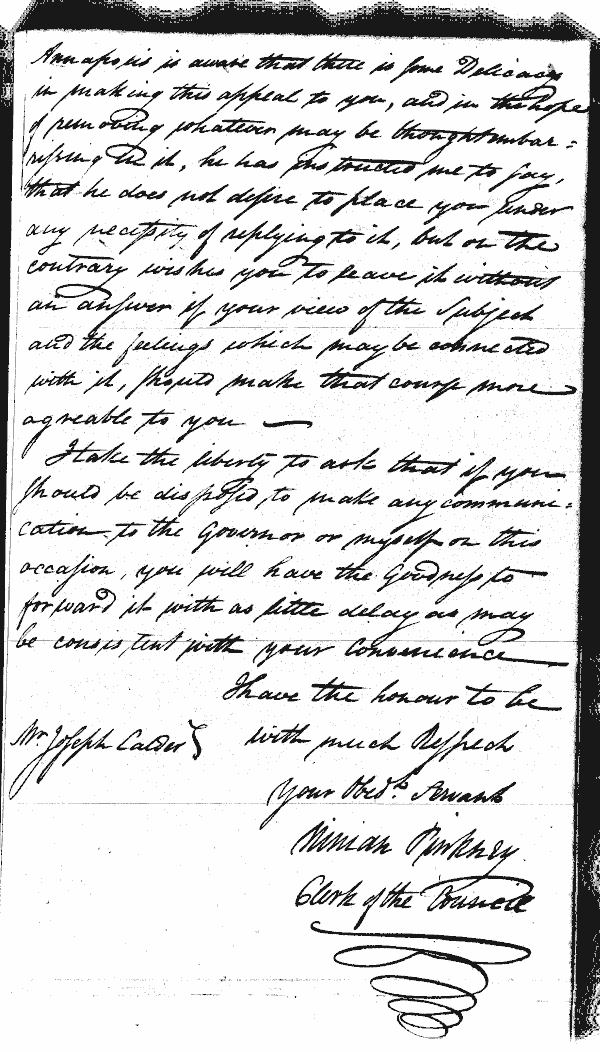 Annapolis is aware that there is some Delicacy
in making this appeal to you, and in the hope
of removing whatever may be thought embar=
rissing in it, he has instructed me to say,
that he does not desire to place you under
any necessity of replying to it, but on the
contrary wishes you to leave it without
an answer if your view of the Subject
and the feelings which may be connected
with it, should make that course more
agreable to you —
I take the liberty to ask that if you
should be disposed, to make any communi=
cation to the Governor or myself on this
occasion, you will have the Goodness to
forward it with as little delay as may
be consistent with your Convenience
I have the honour to be
Mr Joseph Calder } with much Respect
Your Obedt. Servant
Ninian Pinkney
Clerk of the Council